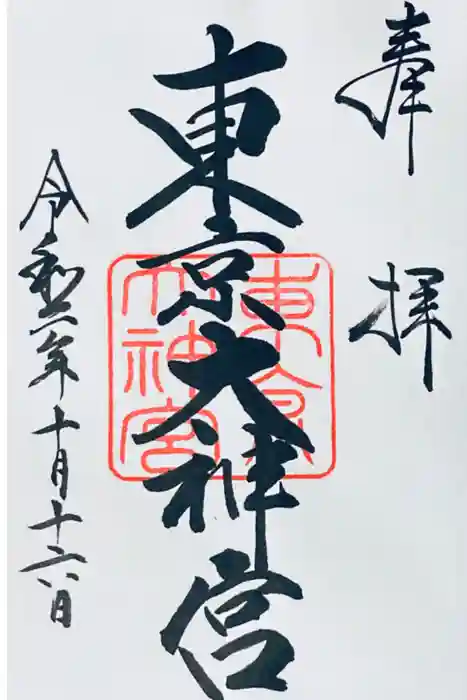 奉拝
東京大神宮
東京
大神宮
令和二年十月十六日